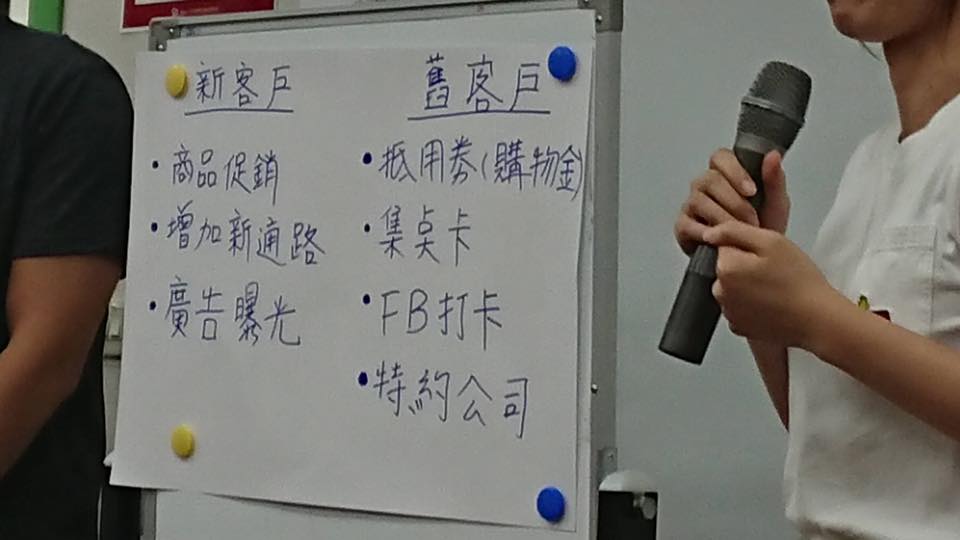 新客戶
商品促銷
增加新通路
廣告曝光
舊客戶
抵用券(購物金)
集点卡
FB打卡
特約公司